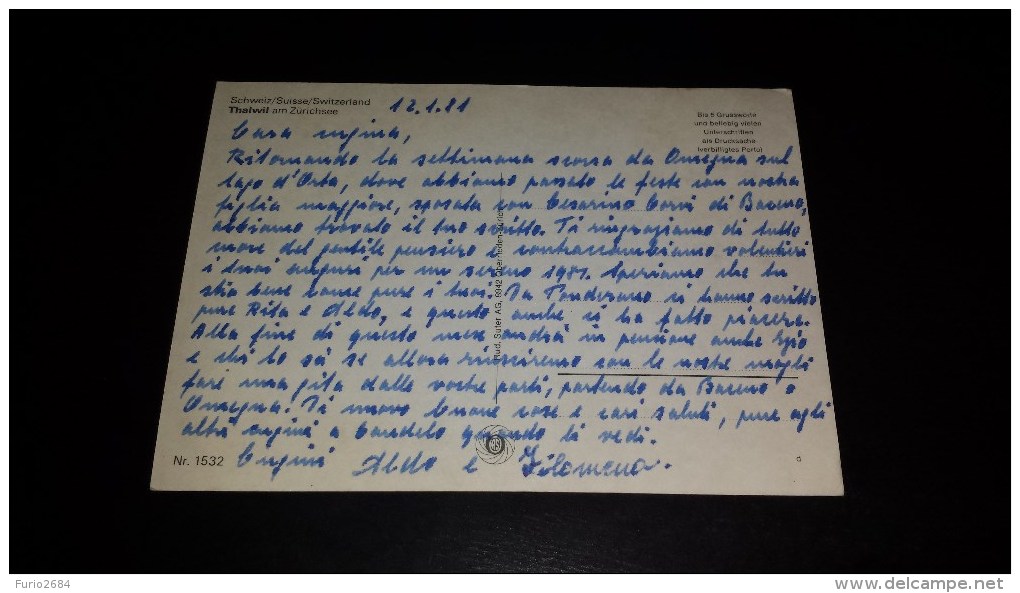 Schweiz/Suisse/Switzerland
Thalwil am Zürichsee
12.1.81
Bis 5 Grussworte
und beliebig vielen
Unterschriften
als Drucksache
(verbilligtes Porto)
Cara cugina,
Ritornando la settimana scorsa da Omegna sul
lago d'Orta, dove abbiamo passato le feste con nostra
figlia maggiore, sposata con Cesarino Corvi di Baveno,
abbiamo trovato il tuo scritto. Ti ringraziamo di tutto
cuore del gentile pensiero e contraccambiamo volentieri
i tuoi auguri per un sereno 1981. Speriamo che tu
stia bene come pure i tuoi. Da Ponderano ci hanno scritto
pure Rita e Aldo, e questo anche ci ha fatto piacere.
Alla fine di questo mese andrà in pensione anche Ezio
e chi lo sà se allora riusciremo con le nostre mogli
fare una gita dalle vostre parti, partendo da Baveno o
Omegna. Ti nuovo buone cose e cari saluti, pure agli
altri cugini a Candelo quando li vedi.
Cugini Aldo e Filomena.
Rud. Suter AG, 8942 Oberrieden-Zürich
Nr. 1532
Furio2684
www.delcampe.net